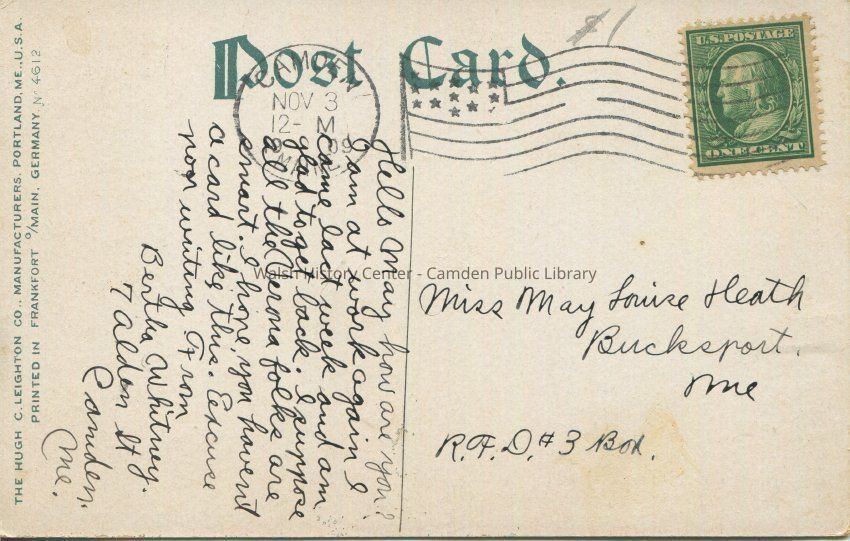 Post Card.
CAMDEN
NOV 3
12- M
09
U.S. POSTAGE
ONE CENT
$1
Hello May how are you?
I am at work again I
came last week and am
glad to get back. I suppose
all the Verona folks are
smart. I hope you havent
a card like this. Excuse
poor writing From
Bertha Whitney.
7 Alden St
Camden.
Me.
Miss May Louise Heath
Bucksport.
Me
R.F.D. #3 Box.
THE HUGH C. LEIGHTON CO., MANUFACTURERS, PORTLAND, ME., U.S.A.
PRINTED IN FRANKFORT o/MAIN, GERMANY. No 4612
Walsh History Center - Camden Public Library